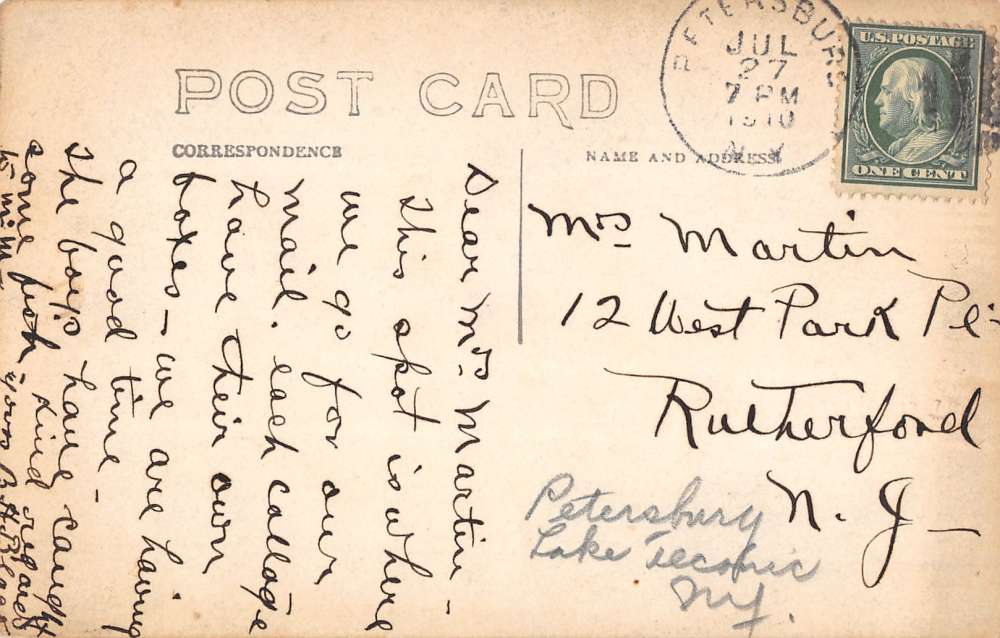 POST CARD
CORRESPONDENCE
NAME AND ADDRESS
PETERSBURG
JUL
27
7 PM
1910
N.Y.
U.S. POSTAGE
ONE CENT
Mrs Martin
12 West Park Pl-
Rutherford
N. J-
Petersburg
Lake Teconic
N.Y.
Dear Mrs Martin-
This spot is where
we go for our
mail. each cottage
have their own
boxes - we are having
a good time -
The boy's have caught
some fish - Kind regards
to
yours